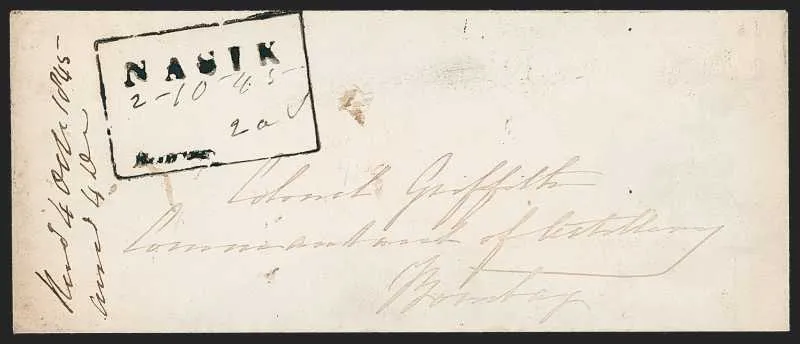 NASIK
2-10-45
2a
Colonel Griffith
Commandant of Artillery
Bombay
Recd 4 Octr 1845
ansd 4 Do